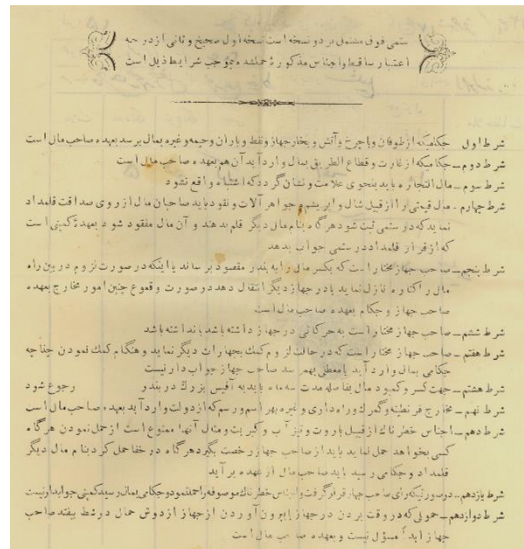 ستمی فوق مشتمل بر دو نسخه است نسخه اول صحیح و ثانی از درجه
اعتبار ساقط و اجناس مذکوره حملشده بموجب شرایط ذیل است
شرط اول جکامیکه از طوفان و یا چرخ و آتش و بخار جهاز و نفط و باران و خیمه و غیره بمال برسد بعهده صاحب مال است
شرط دوم ـ جکامیکه از غارت و قطاع الطریق بمال وارد آید آنهم بعهده صاحب مال است
شرط سوم ـ مال التجاره باید بنحوی علامت و نشان گردد که اشتباه واقع نشود
شرط چهارم ـ مال قیمتی را از قبیل شال و ابریشم و جواهر آلات و نقود باید صاحبان مال از روی صداقت قلمداد
نماید که در ستمی ثبت شود هر گاه بنام مال دیگر قلم بدهند و آن مال مفقود شود بعهدۀ کمپنی است
که از قرار قلمداد در ستمی جواب بدهد
شرط پنجم ـ صاحب جهاز مختار است که یکسر مال را به بندر مقصود برساند یا اینکه در صورت لزوم در بین راه
مال را کناره نازل نماید یا در جهاز دیگر انتقال دهد در صورت وقوع چنین امور مخارج بعهده
صاحب جهاز و جکام بعهده صاحب مال است
شرط ششم ـ صاحب جهاز مختار است به حرکاتی در جهاز داشته باشد یا نداشته باشد
شرط هفتم ـ صاحب جهاز مختار است که در حالت لزوم کمک بجهازات دیگر نماید و هنگام کمک نمودن چنانچه
جکامی بمال وارد آید یا معطلی بهم رسد صاحب جهاز جوابدار نیست
شرط هشتم ـ جهت کسر و کمبود مال بفاصله مدت سه ماه باید به آفیس بزرگ در بندر رجوع شود
شرط نهم ـ مخارج قرنطینه و گمرک و راهداری و غیره بهر اسم و رسم که از دولت وارد آید بعهده صاحب مال است
شرط دهم ـ اجناس خطرناک از قبیل باروت و تیزآب و کبریت و مثال آنها ممنوع است از حمل نمودن هر گاه
کسی بخواهد حمل نماید باید از صاحب جهاز رخصت بگیرد هر گاه در خفا حمل کرد بنام مال دیگر
قلمداد و جکامی رسید باید صاحب مال از عهده بر آید
شرط یازدهم ـ در صورتیکه رأی صاحب جهاز قرار گرفت و اجناس خطرناک موصوفه را حمل نمود و جکامی بمال رسید کمپنی جوابدار نیست
شرط دوازدهم ـ حمولی که در وقت بردن در جهاز یا بیرون آوردن از جهاز از دوش حمال در شط بیفتد صاحب
جهاز آبداً مسؤل نیست و بعهده صاحب مال است